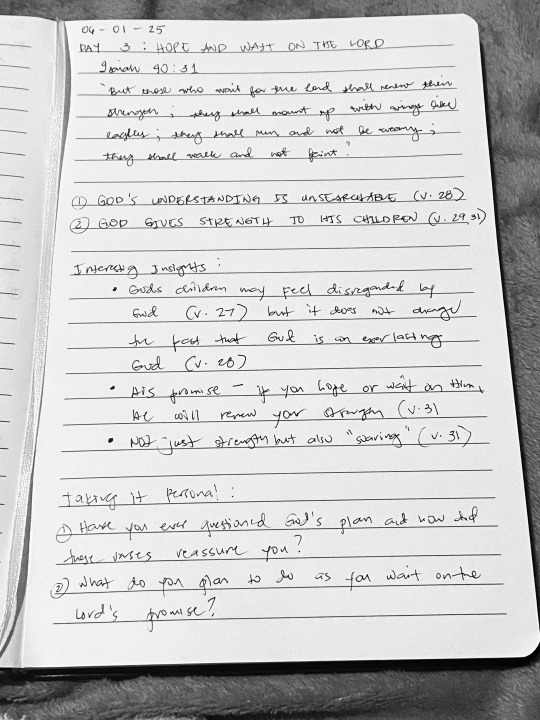 04-01-25
DAY 3 : HOPE AND WAIT ON THE LORD
Isaiah 40:31
"But those who wait for the Lord shall renew their
strength ; they shall mount up with wings like
eagles ; they shall run and not be weary ;
they shall walk and not faint."
① GOD'S UNDERSTANDING IS UNSEARCHABLE (v. 28)
② GOD GIVES STRENGTH TO HIS CHILDREN (v. 29, 31)
Interesting Insights :
• Gods children may feel disregarded by
God (v. 27) but it does not change
the fact that God is an everlasting
God (v. 28)
• His promise – if you hope or wait on Him,
He will renew your strength (v. 31
• NOT just strength but also "soaring" (v. 31)
Taking it Personal :
① Have you ever questioned God's plan and how did
these verses reassure you?
② What do you plan to do as you wait on the
Lord's promise?